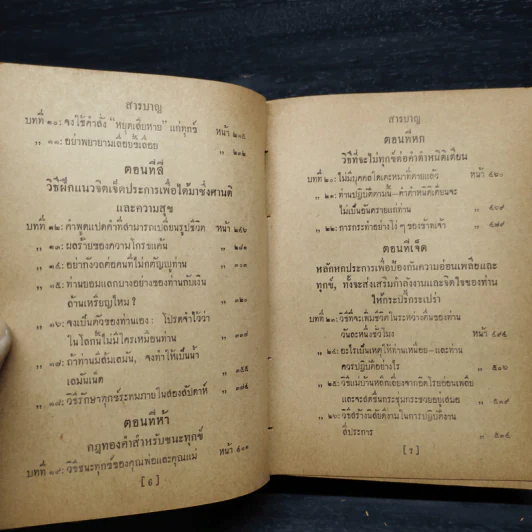 สารบาญ
บทที่ ๑๐: จงใช้คำสั่ง "หยุดเสียหาย" แก่ทุกข์ หน้า
„ ๑๑: อย่าพยายามเลื่อยขี้เลื่อย
ตอนที่สี่
วิธีฝึกแนวจิตเจ็ดประการเพื่อได้มาซึ่งศานติ
และความสุข
บทที่ ๑๒: คำพูดแปดคำที่สามารถเปลี่ยนรูปชีวิต หน้า
„ ๑๓: ผลร้ายของความโกรธแค้น
„ ๑๔: อย่ากังวลต่อคนที่ไม่กตัญญูท่าน
„ ๑๕: ท่านยอมแลกบางอย่างของท่านกับเงิน
ล้านเหรียญไหม ?
„ ๑๖: จงเป็นตัวของท่านเอง : โปรดจำไว้ว่า
ในโลกนี้ไม่มีใครเหมือนท่าน
„ ๑๗: ถ้าท่านมีส้มเสมัน, จงทำให้เป็นน้ำ
เลมันเน็ด
„ ๑๘: วิธีรักษาทุกข์ระทมภายในสองสัปดาห์
ตอนที่ห้า
กฎทองคำสำหรับชนะทุกข์
บทที่ ๑๙: วิธีชนะทุกข์ของคุณพ่อและคุณแม่ หน้า
[ 6 ]
สารบาญ
ตอนที่หก
วิธีที่จะไม่ทุกข์ต่อคำตำหนิติเตียน
บทที่ ๒๐: ไม่มีบุคคลใดเตะหมาที่ตายแล้ว หน้า
„ ๒๑: ท่านปฏิบัติตามนี้—คำตำหนิติเตียนจะ
ไม่เป็นอันตรายแก่ท่าน
„ ๒๒: การกระทำอย่างโง่ ๆ ของข้าพเจ้า
ตอนที่เจ็ด
หลักหกประการเพื่อป้องกันความอ่อนเพลียและ
ทุกข์, ทั้งจะส่งเสริมกำลังงานและจิตใจของท่าน
ให้กระปรี้กระเปร่า
บทที่ ๒๓: วิธีที่จะเพิ่มชีวิตในระหว่างตื่นของท่าน
วันละหนึ่งชั่วโมง หน้า
„ ๒๔: อะไรเป็นเหตุให้ท่านเหนื่อย—และท่าน
ควรปฏิบัติอย่างไร
„ ๒๕: วิธีแม่บ้านหลีกเลี่ยงจากอิดโรยอ่อนเพลีย
และจะสดชื่นกระชุ่มกระชวยอยู่เสมอ
„ ๒๖: วิธีสร้างนิสัยดีงามในการปฏิบัติงาน
สี่ประการ
[ 7 ]